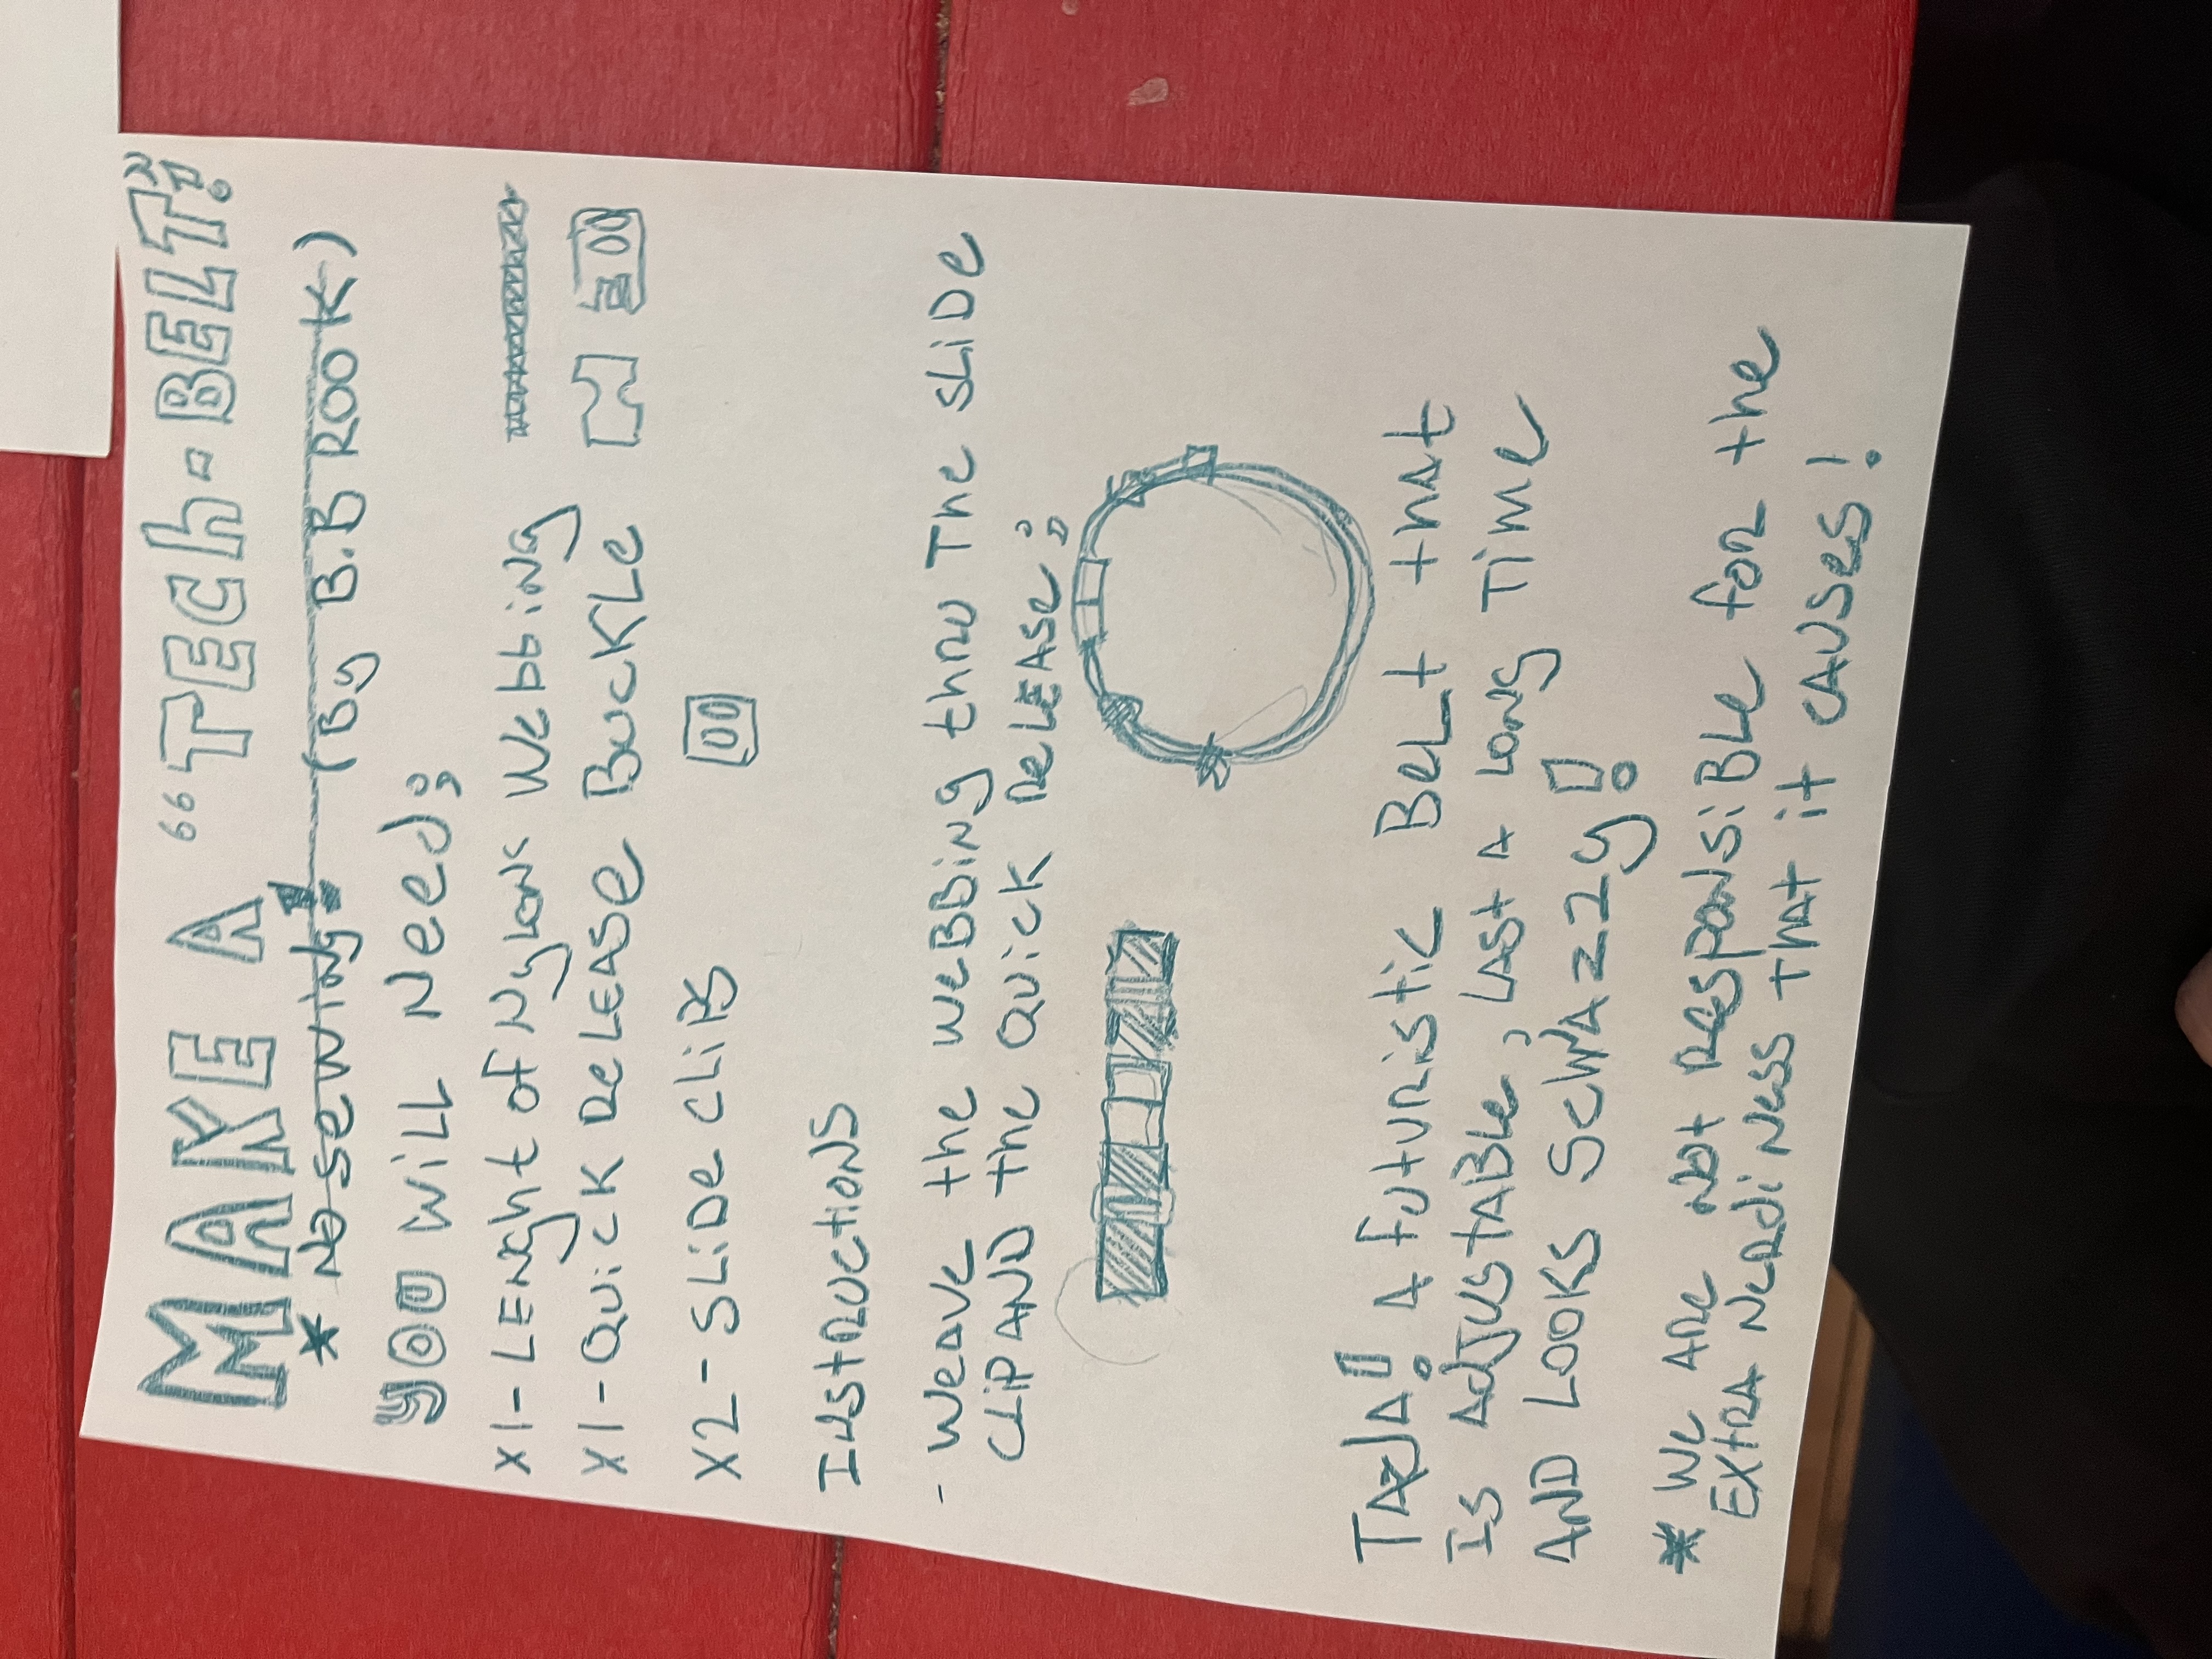 MAKE A "TECH-BELT"!
* NO SEWING! (By B.B ROOK)
YOU WILL NEED:
X1-LENGHT OF NYLON WEBBING
X1-QUICK RELEASE BUCKLE
X2-SLIDE CLIPS
INSTRUCTIONS
- WEAVE THE WEBBING THRU THE SLIDE
CLIP AND THE QUICK RELEASE:
TA-DA! A FUTURISTIC BELT THAT
IS ADJUSTABLE, LAST A LONG TIME
AND LOOKS SCHWAZZY!
* WE ARE NOT RESPONSIBLE FOR THE
EXTRA NERDINESS THAT IT CAUSES!